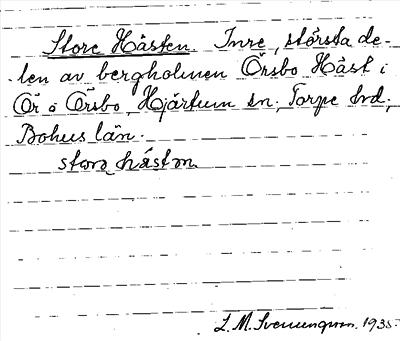 Store Hästen. Inre, största de-
len av bergholmen Örsbo Häst i
Ör o Örsbo, Hjärtum sn, Torpe hd,
Bohus län.
storə hästn
L. M. Svenungsson. 1935.